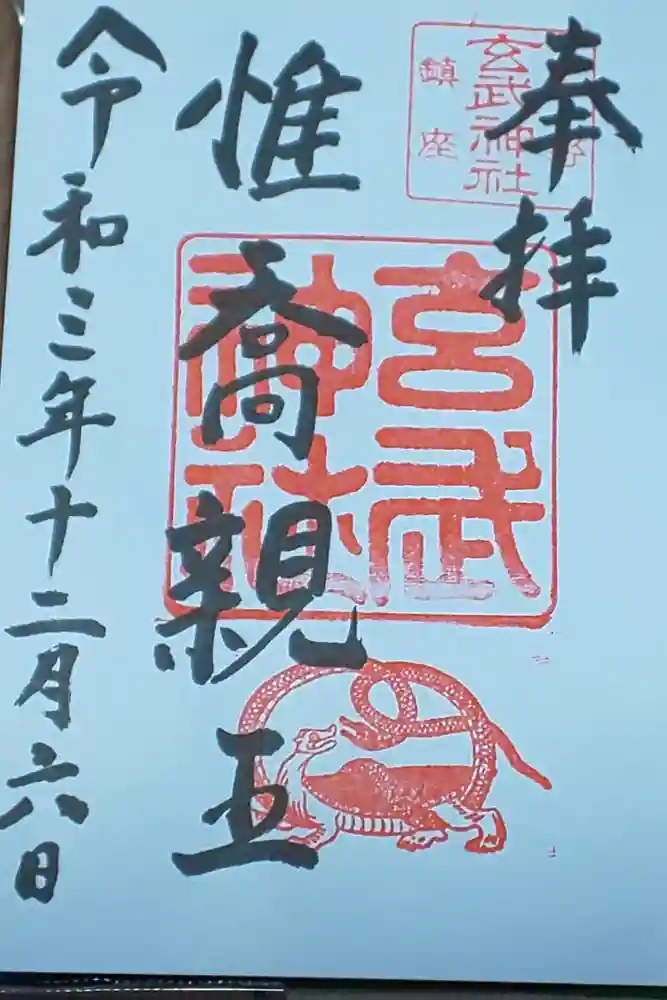 奉拝
玄武神社
鎮座
玄武神社
惟喬親王
令和三年十二月六日